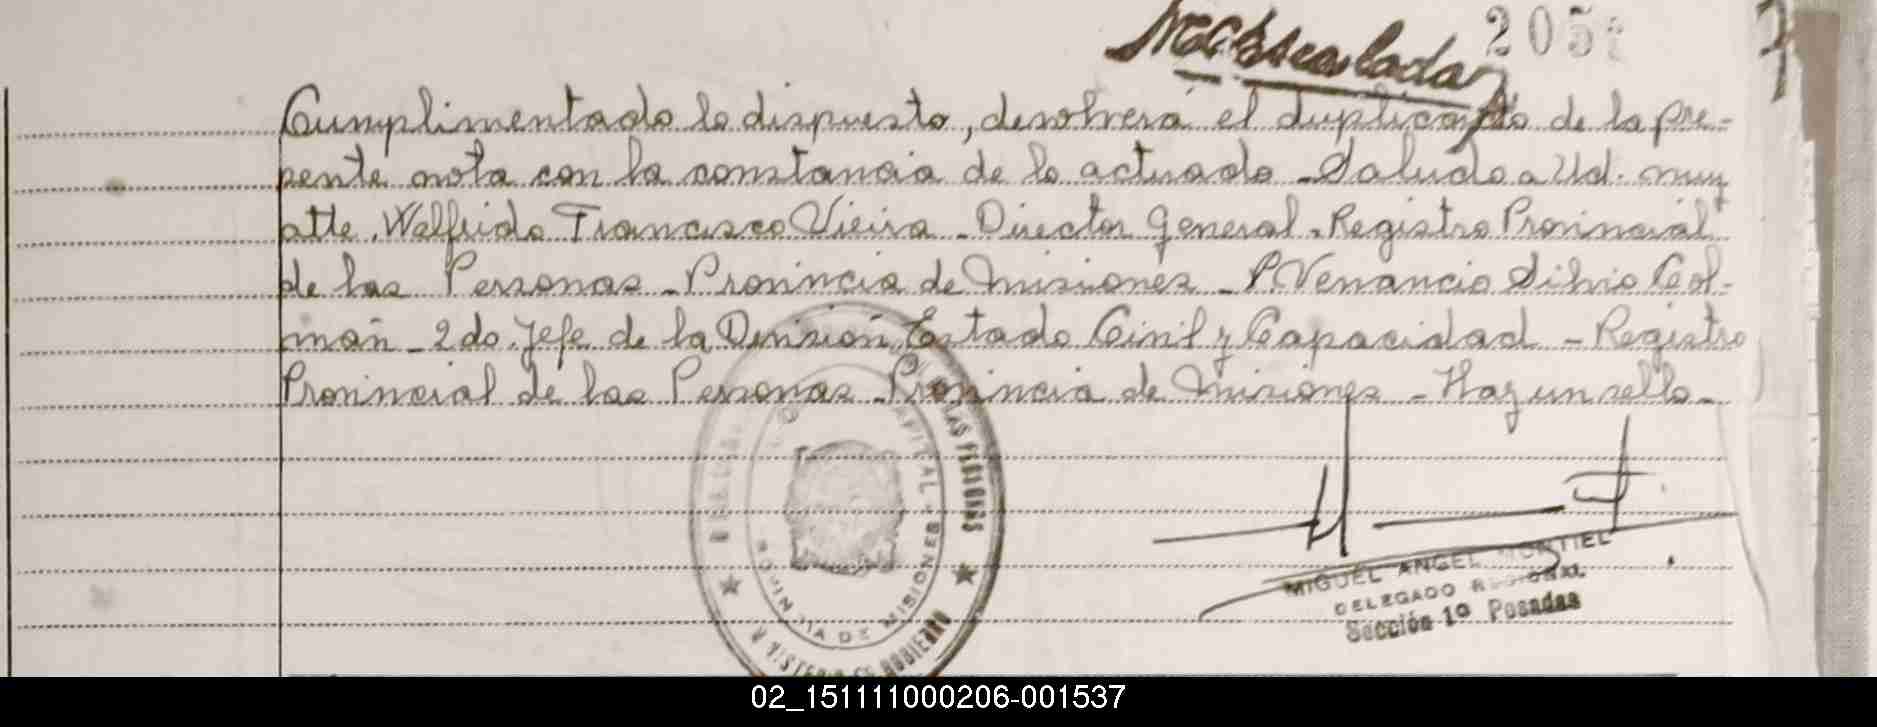 205
Cumplimentado lo dispuesto, devolverá el duplicado de la pre-
sente nota con la constancia de lo actuado - Saludo a Ud. muy
atte. Welfrido Francisco Vieira - Director General - Registro Provincial
de las Personas - Provincia de Misiones - P. Venancio Silvio Col-
mán - 2do. Jefe de la División Estado Civil y Capacidad - Registro
Provincial de las Personas - Provincia de Misiones - Hay un sello -
LAS PERSONAS
CAPITAL
PROVINCIA DE MISIONES
MINISTERIO DE GOBIERNO
MIGUEL ANGEL MONTIEL
DELEGADO REGIONAL
Sección 1º Posadas
02_151111000206-001537